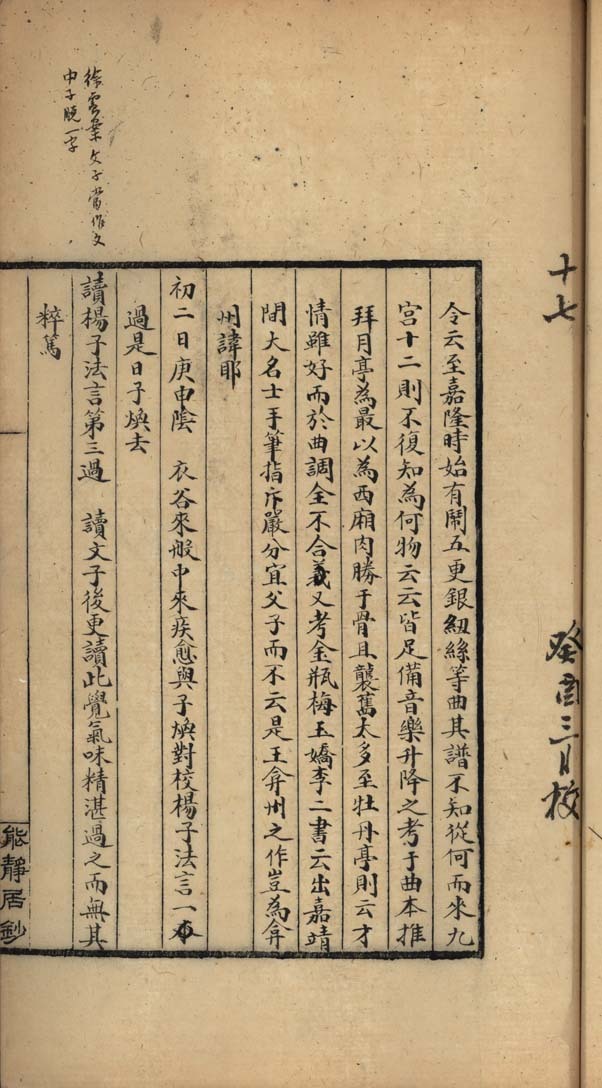 十七
癸酉三月校
令云至嘉隆時始有鬧五更銀紐絲等曲其譜不知從何而來九
宮十二則不復知為何物云云皆足備音樂升降之考于曲本推
拜月亭為最以為西廂肉勝于骨且襲舊太多至牡丹亭則云才
情雖好而於曲調全不合義又考金瓶梅玉嬌李二書云出嘉靖
間大名士手筆指斥嚴分宜父子而不云是王弇州之作豈為弇
州諱耶
初二日庚申陰　衣谷來般中來疾愈與子煥對校楊子法言一本
過是日子煥去
讀楊子法言第三過　讀文子後更讀此覺氣味精湛過之而無其
粹篤
徐靈桒文子嘗作文
中子脫一字
能靜居鈔